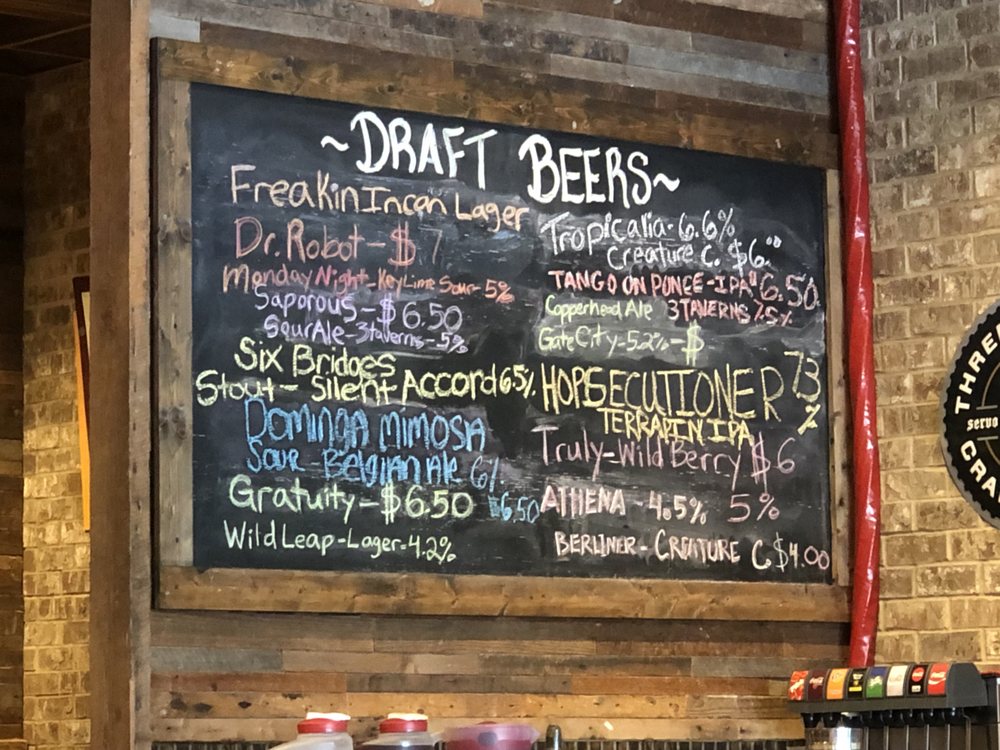 ~DRAFT BEERS~
Freakin Incan Lager
Dr. Robot - $7
Monday Night - Key Lime Sour - 5%
Saporous - $6.50
Sour Ale - 3taverns - 5%
Six Bridges
Stout - Silent Accord 6.5%
Dominga Mimosa
Sour - Belgian Ale 6%
$6.50
Gratuity - $6.50
Wild Leap - Lager - 4.2%
Tropicalia - 6.6%
Creature C. $6.00
TANGO ON PONCE - IPA $6.50
Copperhead Ale 3TAVERNS
Gate City - 5.2% - $
HOPSECUTIONER 7.3%
TERRAPIN IPA
Truly - Wild Berry $6
5%
ATHENA - 4.5%
BERLINER - CREATURE C $4.00
THREE
CRA